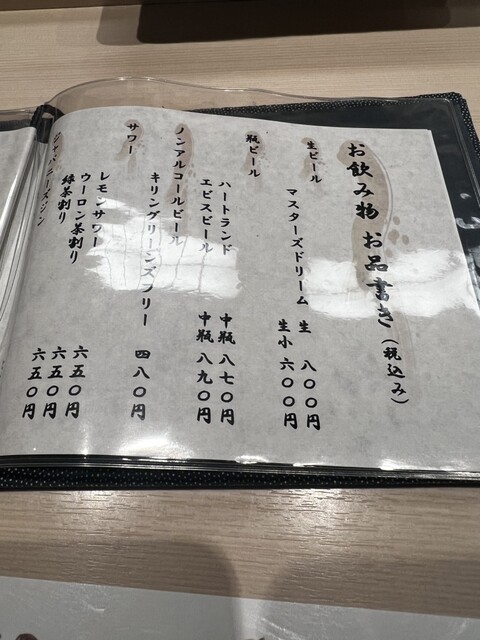 お飲み物 お品書き（税込み）
生ビール
マスターズドリーム 生 八〇〇円
生小 六〇〇円
瓶ビール
ハートランド 中瓶 八七〇円
エビスビール 中瓶 八九〇円
ノンアルコールビール
キリングリーンズフリー 四八〇円
サワー
レモンサワー 六五〇円
ウーロン茶割り 六五〇円
緑茶割り 六五〇円
ジャパニーズジン